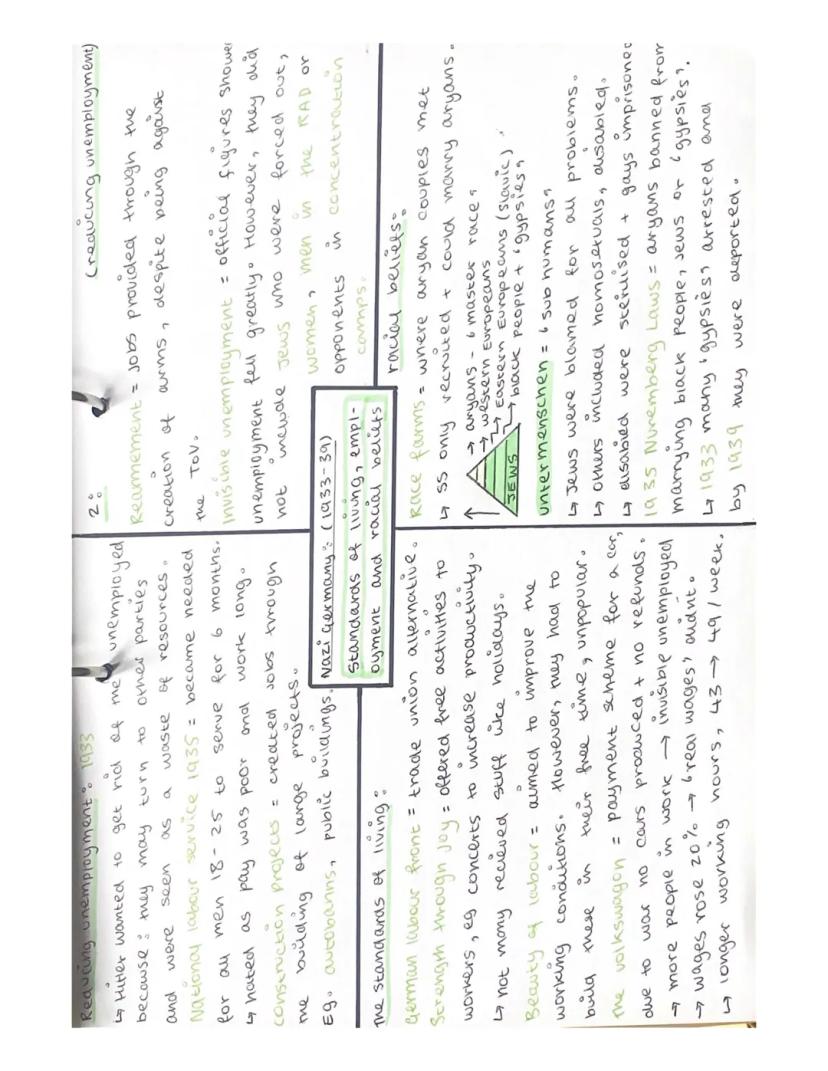 Reducing unemployment: 1933
↳ Hitler wanted to get rid of the unemployed
because: they may turn to other parties
and were seen as a waste of resources.
National labour service 1935 = became needed
for all men 18-25 to serve for 6 months.
↳ hated as pay was poor and work long.
construction projects = created jobs through
the building of large projects.
Eg. autobahns, public buildings.
2:
(reducing unemployment)
Rearmement = jobs provided through the
creation of arms, despite being against
the TOV.
Invisible unemployment = official figures showe
unemployment fell greatly. However, they did
not include Jews who were forced out,
women, men in the RAD or
opponents in concentration
camps.
Nazi Germany: (1933-39)
standards of living, empl-
oyment and racial beliefs
The standards of living:
German labour front = trade union alternative.
Strength through joy = offered free activities to
workers, eg concerts to increase productivity.
↳ not many recieved stuff like holidays.
Beauty of labour = aimed to improve the
working conditions. However, may had to
build these in their free time, unpopular.
The volkswagon = payment scheme for a car,
due to war no cars produced + no refunds.
→ more people in work → invisible unemployed
→ wages rose 20% → 'real wages' didnt.
↳ longer working hours, 43 → 49/week.
racial beliefs:
Race farms = where aryan couples met
↳ SS only recruited + could marry aryans.
→ aryans - 'master race'
→ western Europeans
→ Eastern Europeans (slavic)
→ black people + 'gypsies'
JEWS
untermenschen = 'sub humans'
↳ Jews were blamed for all problems.
↳ others included homosexuals, disabled.
↳ disabled were sterilised + gays imprisoned
1935 Nuremberg Laws = aryans banned from
marrying black people, Jews or 'gypsies'.
↳ 1933 many 'gypsies' arrested and
by 1939 they were deported.